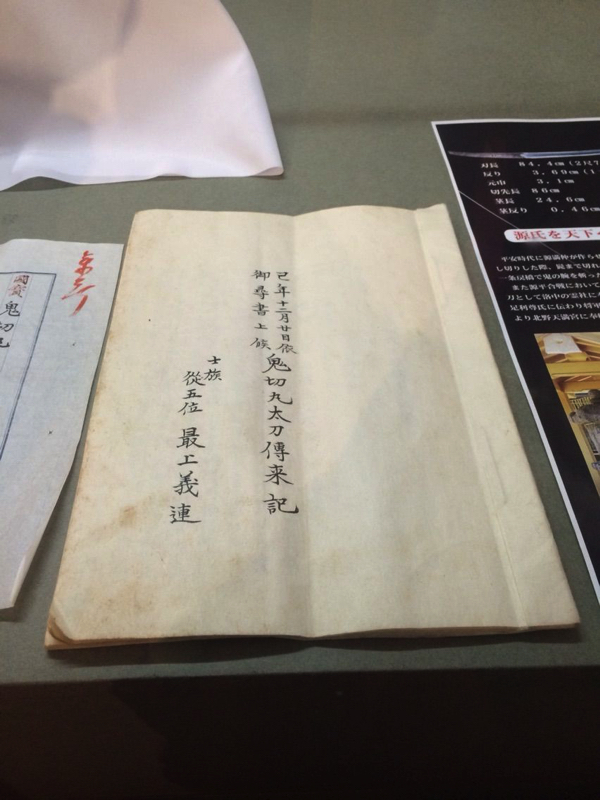 已年十二月廿日依
御尋書上候
鬼切丸太刀傳来記
士族
従五位 最上義連
國寳
鬼切
刃長 84.4㎝(2尺7
反り 3.69㎝(1
元巾 3.1㎝
切先長 86㎝
茎長 24.6㎝
茎反り 0.46㎝
源氏を天下
平安時代に源満仲が作らせ
し切りした際、髭まで切れ
一条戻橋で鬼の腕を斬った
また源平合戦において
刀として洛中の霊社に
足利尊氏に伝わり将軍
より北野天満宮に奉